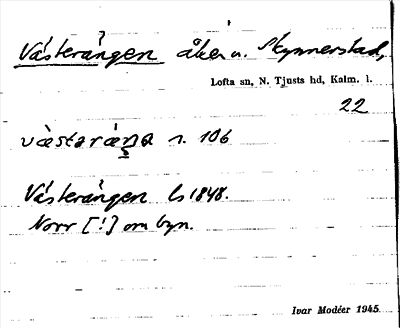 Västerängen åker u. Skynnerstad,
Lofta sn, N. Tjusts hd, Kalm. l.
22
västaräŋa n. 106
Västerängen ls 1848.
Norr [!] om byn.
Ivar Modéer 1945.